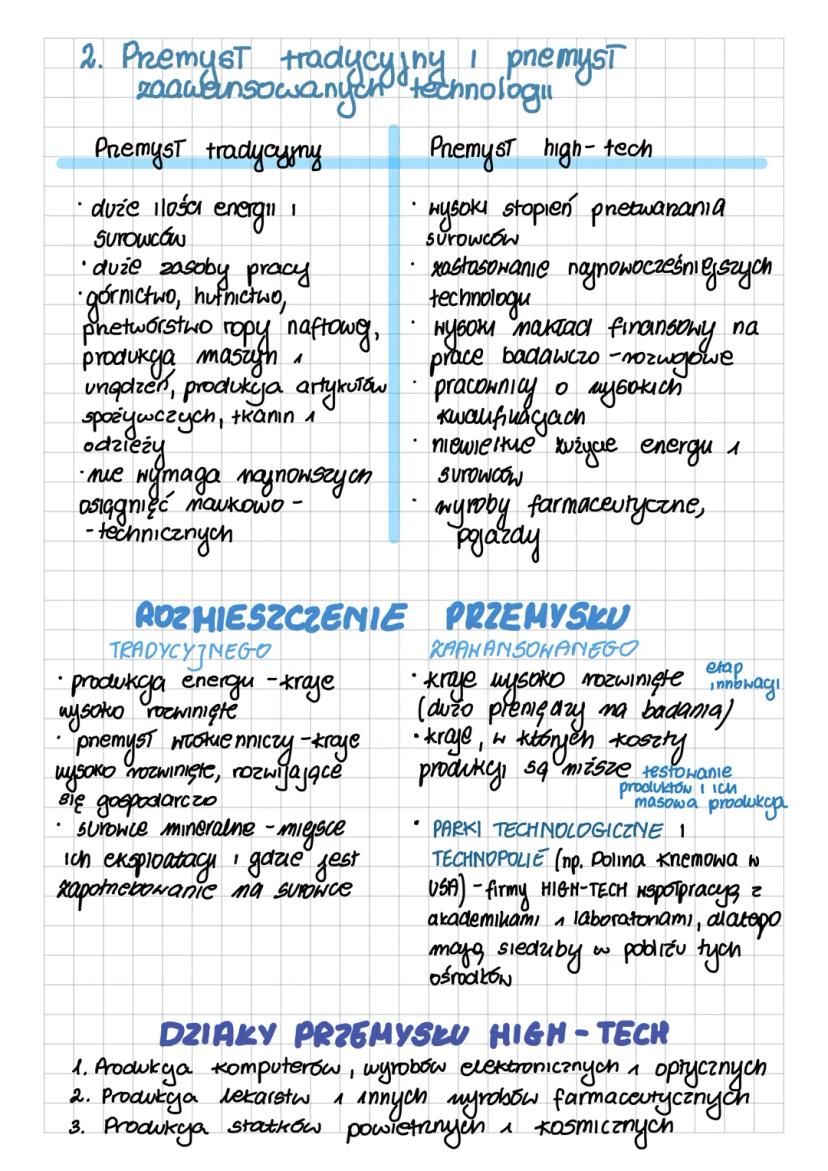 2. Przemysł tradycyjny i przemysł
zaawansowanych technologii
Przemysł tradycyjny
• duże ilości energii i
surowców
• duże zasoby pracy
• górnictwo, hutnictwo,
przetwórstwo ropy naftowej,
produkcja maszyn i
urządzeń, produkcja artykułów
spożywczych, tkanin i
odzieży
• nie wymaga najnowszych
osiągnięć naukowo -
- technicznych
Przemysł high-tech
• wysoki stopień przetwarzania
surowców
• zastosowanie najnowocześniejszych
technologii
• wysoki nakład finansowy na
prace badawczo - rozwojowe
• pracownicy o wysokich
kwalifikacjach
• niewielkie zużycie energii i
surowców
• wyroby farmaceutyczne,
pojazdy
ROZMIESZCZENIE PRZEMYSŁU
TRADYCYJNEGO
• produkcja energii - kraje
wysoko rozwinięte
• przemysł włókienniczy - kraje
wysoko rozwinięte, rozwijające
się gospodarczo
• surowce mineralne - miejsce
ich eksploatacji i gdzie jest
zapotrzebowanie na surowce
ZAAWANSOWANEGO
• kraje wysoko rozwinięte etap
innowacji
(dużo pieniędzy na badania)
• kraje, w których koszty
produkcji są niższe testowanie
produktów i ich
masowa produkcja
• PARKI TECHNOLOGICZNE I
TECHNOPOLIE (np. Dolina Krzemowa w
USA) - firmy HIGH-TECH współpracują z
akademikami i laboratoriami, dlatego
mają siedziby w pobliżu tych
ośrodków
DZIAŁY PRZEMYSŁU HIGH - TECH
1. Produkcja komputerów, wyrobów elektronicznych i optycznych
2. Produkcja lekarstw i innych wyrobów farmaceutycznych
3. Produkcja statków powietrznych i kosmicznych